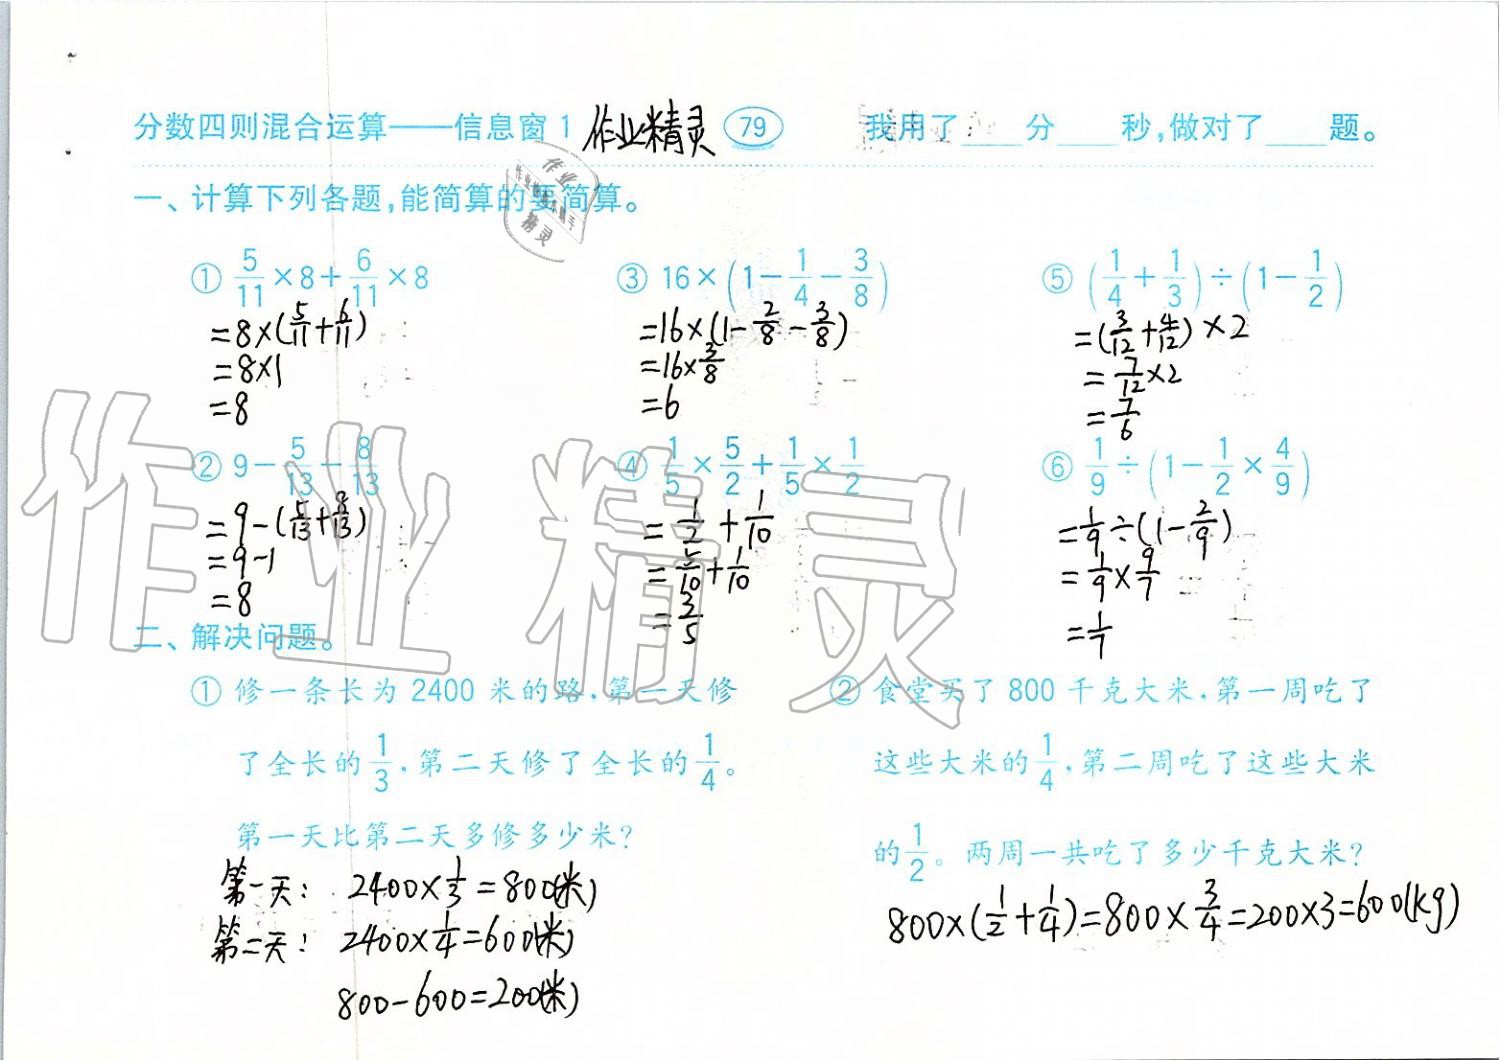 分数四则混合运算——信息窗1 作业精灵 79 我用了____分____秒,做对了____题。
一、计算下列各题,能简算的要简算。
① 5/11×8+6/11×8
=8×(5/11+6/11)
=8×1
=8
② 9-5/13-8/13
=9-(5/13+8/13)
=9-1
=8
③ 16×(1-1/4-3/8)
=16×(1-2/8-3/8)
=16×3/8
=6
④ 1/5×5/2+1/5×1/2
=1/2+1/10
=5/10+1/10
=3/5
⑤ (1/4+1/3)÷(1-1/2)
=(3/12+4/12)×2
=7/12×2
=7/6
⑥ 1/9÷(1-1/2×4/9)
=1/9÷(1-2/9)
=1/9×9/7
=1/7
二、解决问题。
① 修一条长为2400米的路,第一天修
了全长的1/3,第二天修了全长的1/4。
第一天比第二天多修多少米?
第一天: 2400×1/3=800(米)
第二天: 2400×1/4=600(米)
800-600=200(米)
② 食堂买了800千克大米,第一周吃了
这些大米的1/4,第二周吃了这些大米
的1/2。两周一共吃了多少千克大米?
800×(1/2+1/4)=800×3/4=200×3=600(kg)
作业精灵